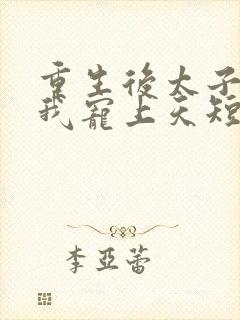 重生後太子
我寵上天短
李亞蕾